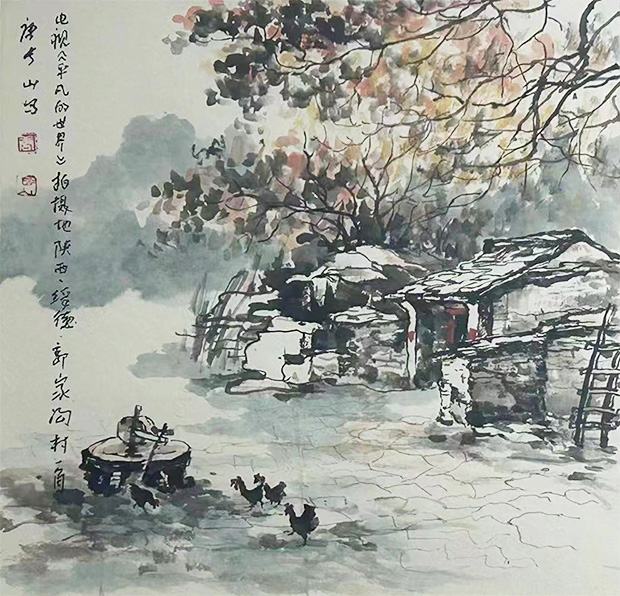 电视《平凡的世界》拍摄地陕西·绥德郭家沟村一角
长山写